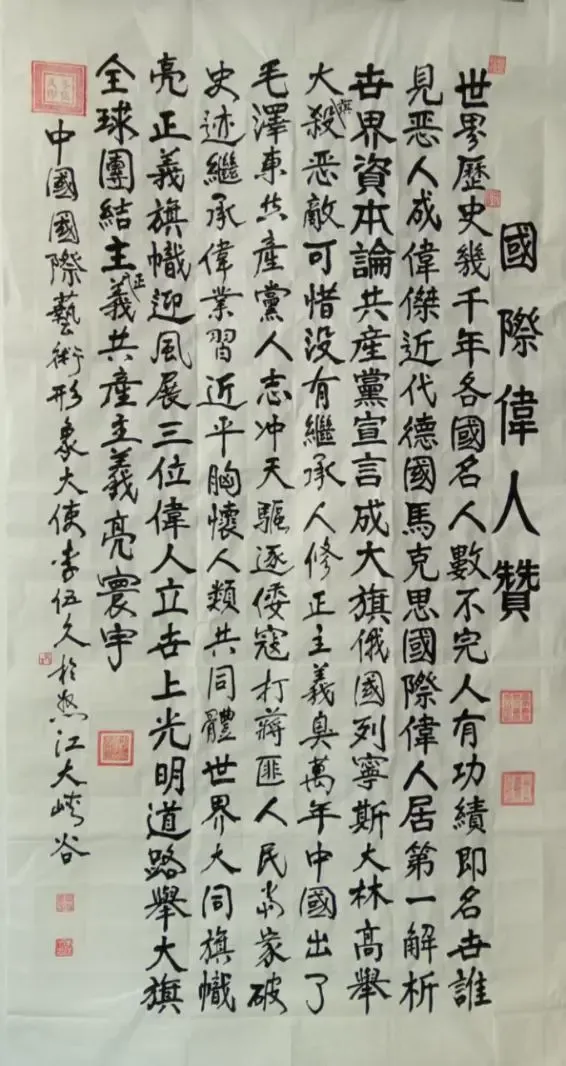 國際偉人贊
世界歷史幾千年各國名人數不完人有功績即名世誰
見恶人成偉傑近代德國馬克思國際偉人居第一解析
世界資本論共產黨宣言成大旗俄國列寧斯大林高舉
大殺恶敵可惜没有繼承人修正主義臭萬年中國出了
毛澤東共產黨人志冲天驅逐倭寇打蔣匪人民當家破
史迹繼承偉業習近平胸懷人類共同體世界大同旗幟
亮正義旗幟迎風展三位偉人立世上光明道路舉大旗
全球團結主義共產主義亮寰宇
正
中國國際藝術形象大使李伍久於怒江大峽谷